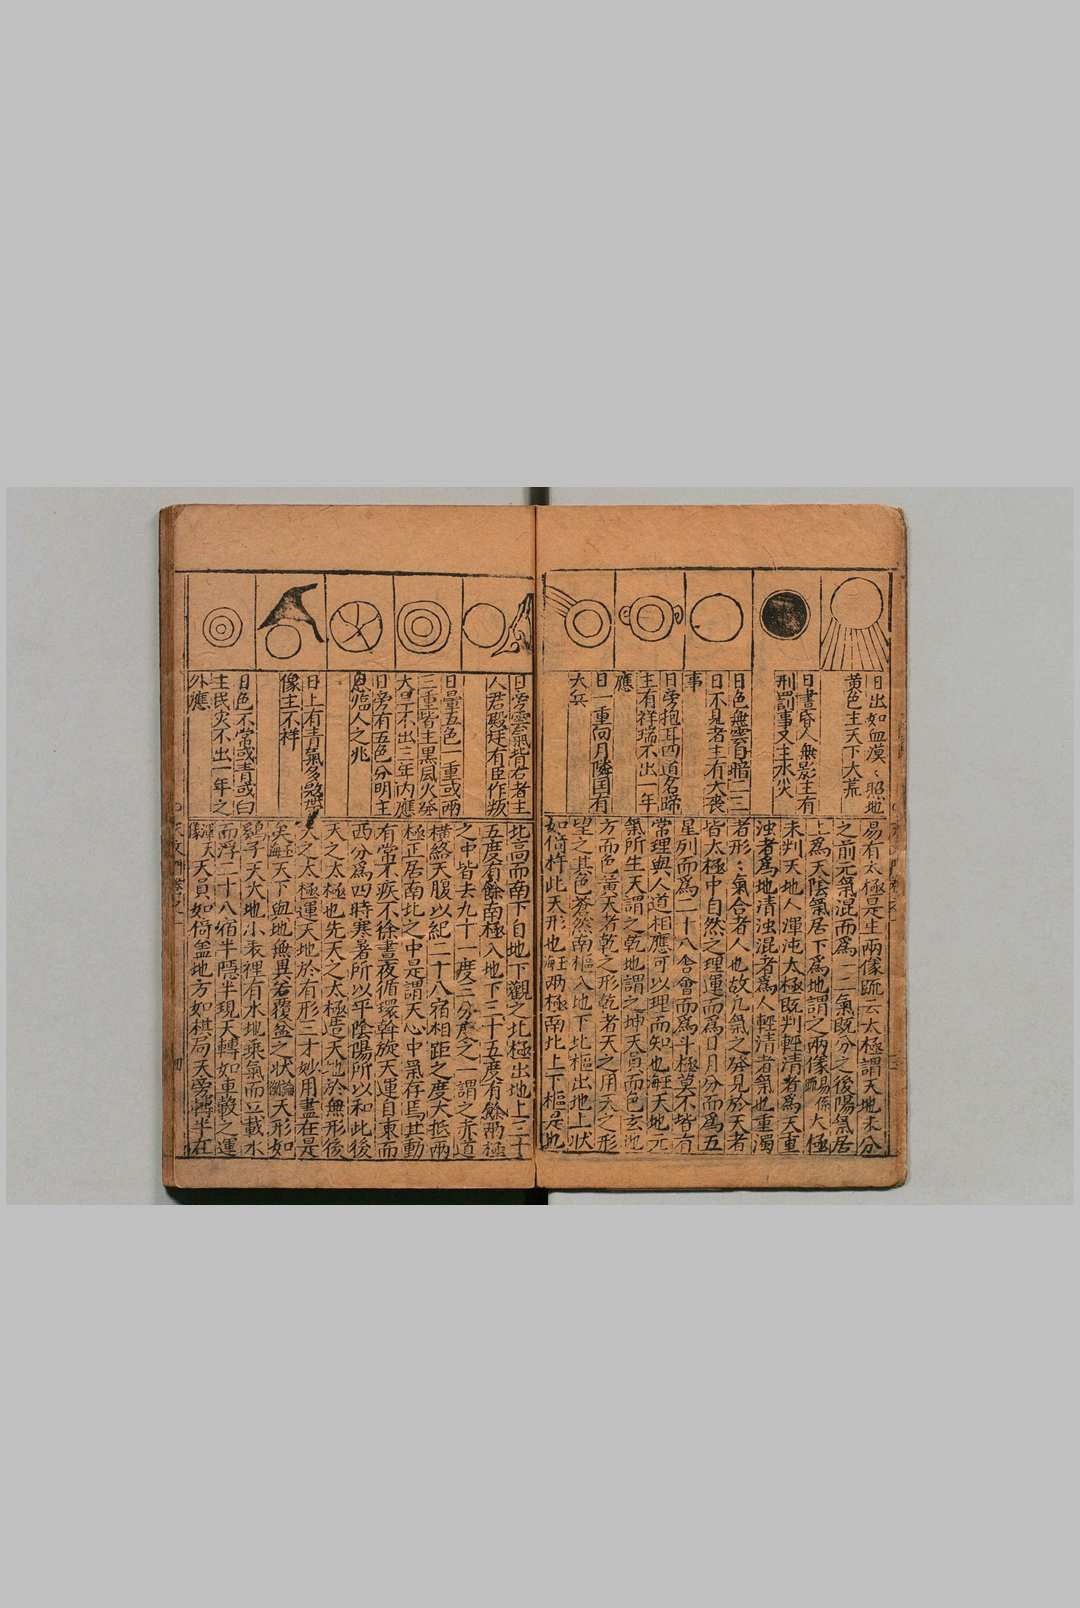 日出如血漠〻照地
黃色主天下大荒
日晝昏人無影主有
刑罰事又主水火
日色無雲日暗二三
日不見者主有大喪
事
日旁抱耳四道名啼
主有祥瑞不出一年
應
日一重向月隣国有
大兵
易有太極是生兩儀䟽云太極謂天地未分
之前元氣混而爲一二氣既分之後陽氣居
上爲天陰氣居下爲地謂之兩儀易係大極
未判天地人渾沌太極既判輕清者爲天重
浊者爲地清浊混者爲人輕清者氣也重濁
者形〻氣合者人也故凢氣之發見於天者
皆太極中自然之理運而爲日月分而爲五
星列而爲二十八舍會而爲斗極莫不皆有
常理與人道相應可以理而知也 天地元
氣所生天謂之乾地謂之坤天員而色玄地
方而色黃天者乾之形乾者天之用天之形
望之其色蒼然南樞入地下北樞出地上状
如倚杵此天形也 兩極南北上下樞是也
日旁雲氣背右者主
人君殿廷有臣作叛
日暈五色一重或兩
三重皆主黒風火發
大旱不出三年内應
日旁有五色分明主
恩临人之兆
日上有青氣多路帶
像主不祥
日色不常或青或白
主民災不出一年之
外應
北高而南下自地下觀之北極出地上三十
五度有餘南極入地下三十五度有餘兩極
之中皆去九十一度三分度之一謂之赤道
横絡天腹以紀二十八宿相距之度大抵兩
極正居南北之中是謂天心中氣存焉其動
有常不疾不徐晝夜循環斡旋天運自東而
西分爲四時寒暑所以平陰陽所以和此後
天之太極也先天之太極造天地於無形後
人之太極運天地於有形三才妙用盡在是
矣 天下與地無異若覆盆之状 天形如
鷄子天大地小表裡有水地乘氣而立載水
而浮二十八宿半隱半現天轉如車轂之運
渾儀天員如倚盖地方如棋局天旁轉半在